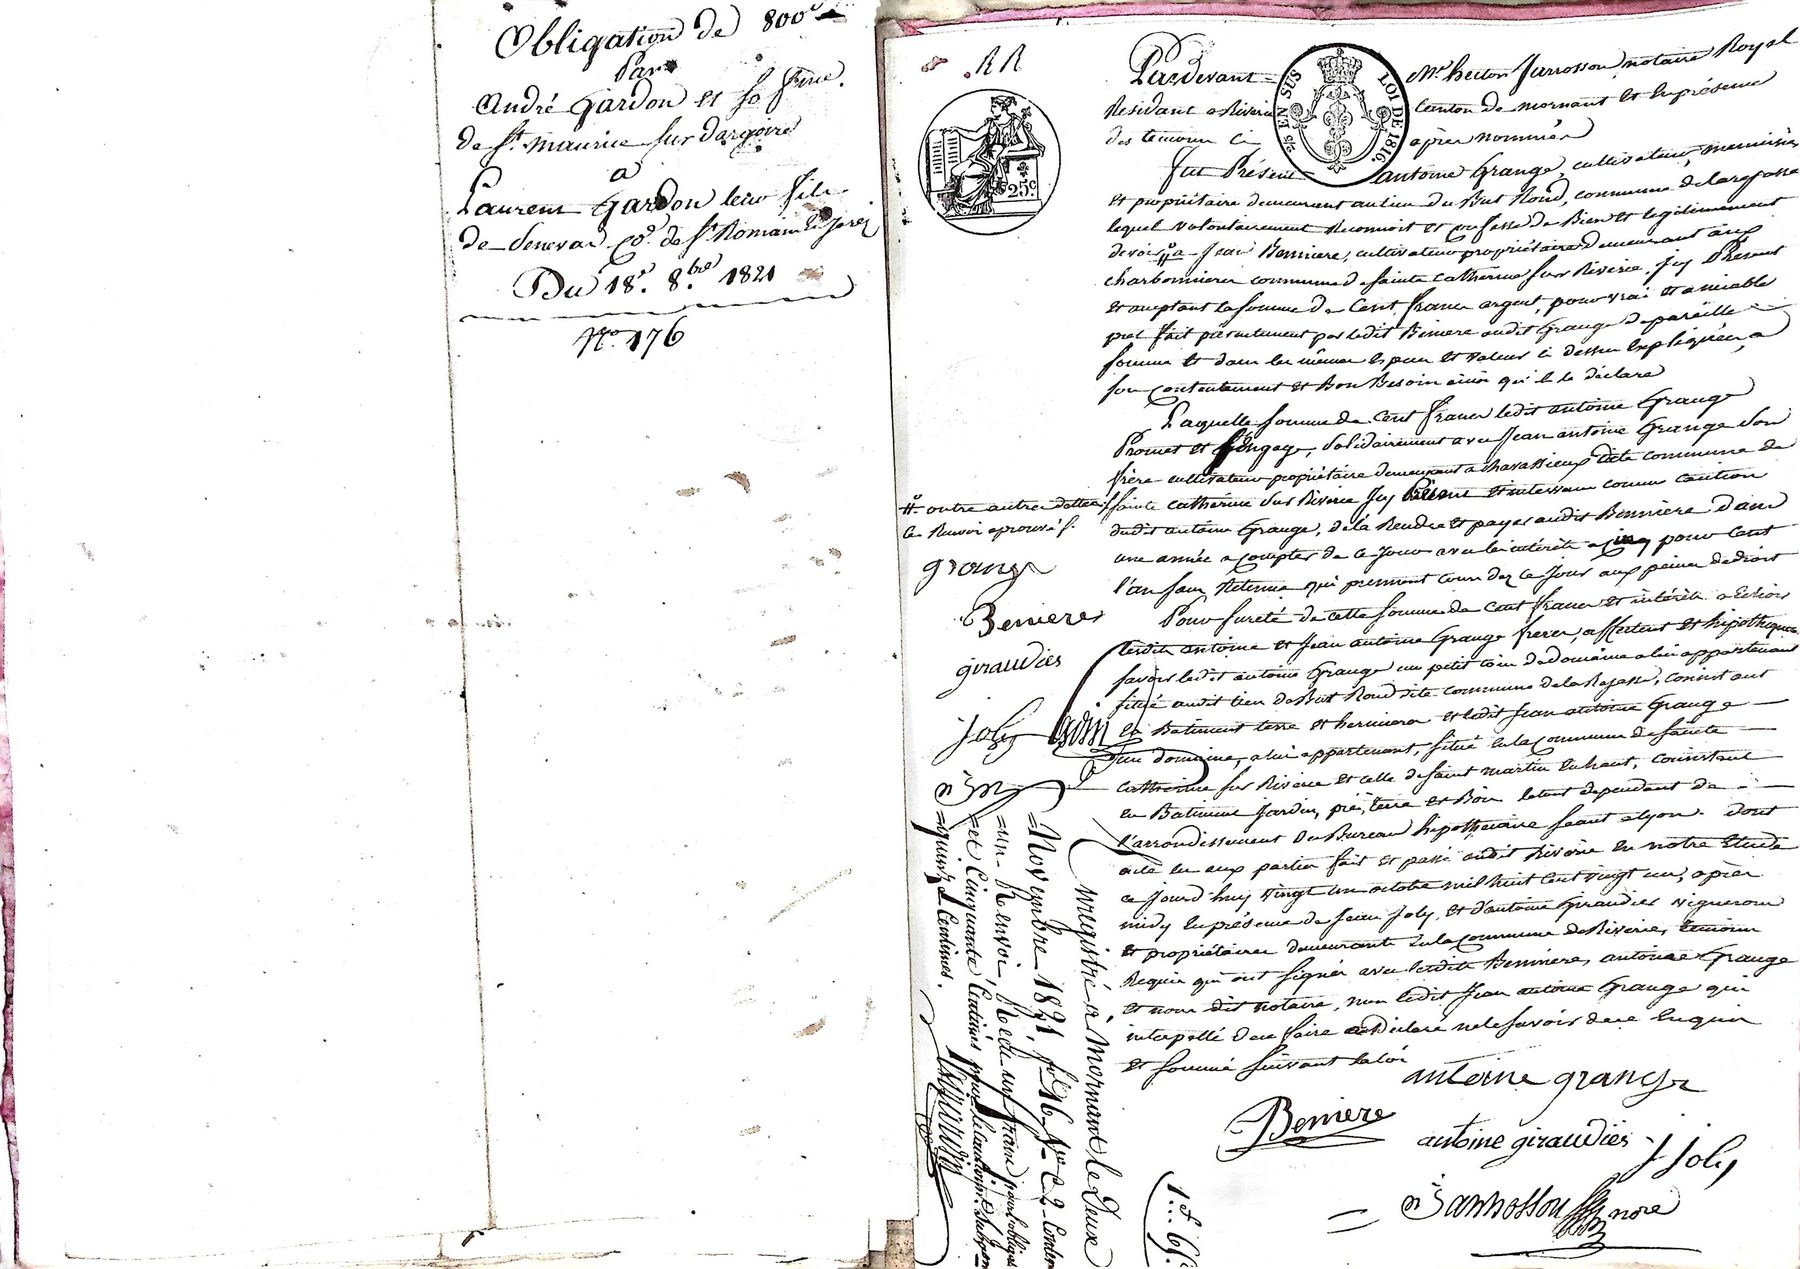 Obligation de 800f
Par
André Gardon et sa fme.
de St. maurice sur dargoire
a
Laurent Gardon leur fils
de Senevas Cne. de St Romain En Jarez
Du 18e. 8bre 1821
No. 176
RR
25c.
25c EN SUS LOI DE 1816.
Pardevant Me. hector Jarrosson notaire Royal
Residant a Riverie Canton de mornant Et En présence
des temoins ci après nommés
fut Présent antoine Grange, cultivateur, menuisier
et propriétaire demeurant au lieu du But Rond, commune de larajasse
lequel volontairement Reconnoit et confesse de Bien et legitimement
devoir a Jean Benniere, cultivateur propriétaire demeurant aux
charbonnieres commune de sainte Catherine sur Riverie, Icy Présent
et acceptant la somme de Cent francs argent, pour vrai et amiable
pret fait présentement par ledit Beniere audit Grange de pareille
somme et dans les mêmes especes et valeurs ci dessus Expliquées, a
son Contentement et Bon Besoin ainsi qu'il le déclare
Laquelle somme de Cent francs ledit antoine Grange
Promet et s'Engage, solidairement avec Jean antoine Grange son
frère cultivateur propriétaire demeurant a chavassieux dite commune de
sainte Catherine sur Riverie Icy Présent et intervenu comme caution
dudit antoine Grange, de la Rendre et payer audit Bennière dans
une année a compter de ce Jour avec les intérêts a cinq pour Cent
l'an sans Retenue qui prennent cours dez ce Jour aux peines de droit
Pour sureté de cette somme de Cent francs et intérêts a Echoir
lesdits antoine et Jean antoine Grange freres, affectent et hipothequent
savoir ledit antoine Grange un petit coin de domaine a lui appartenant
situé audit lieu de But Rond dite commune de la Rajasse, consistant
En Batiment terre et hermieres et ledit Jean antoine Grange
Un domaine, a lui appartenant, situé En la Commune de sainte
Catherine sur Riverie et celle de saint martin En haut, consistant
En Batiment Jardin, prés, terre et Bois le tout dependant de
l'arrondissement Du Bureau hipothécaire séant a Lyon. Dont
acte lu aux parties fait et passé audit Riverie En notre Etude
ce Jourd'huy vingt un octobre mil huit Cent vingt un, après
midy En présence de Jean Joly, et d'antoine Giraudier vignerons
et propriétaires demeurants En la Commune de Riverie, temoins
Requis qui ont signés avec lesdits Benniere, antoine Grange
et nous dit notaire, non ledit Jean antoine Grange qui
interpellé de ce faire a Déclaré ne le savoir de ce Enquis
et sommé suivant la loi
# outre autres dettes
Ce Renvoi aprouvés.
grange
Beniere
giraudier
joly
antoine grange
Beniere
antoine giraudier
J Joly
Jarrosson nore
Enregistré a Mornant le Deux
Novembre 1821, fo 16 Vo C 2 Conten
un Renvoi, Recu un franc pour obligat
et Cinquante Centimes pour le cautionnt. Subvon
quinze Centimes.
1f 65c